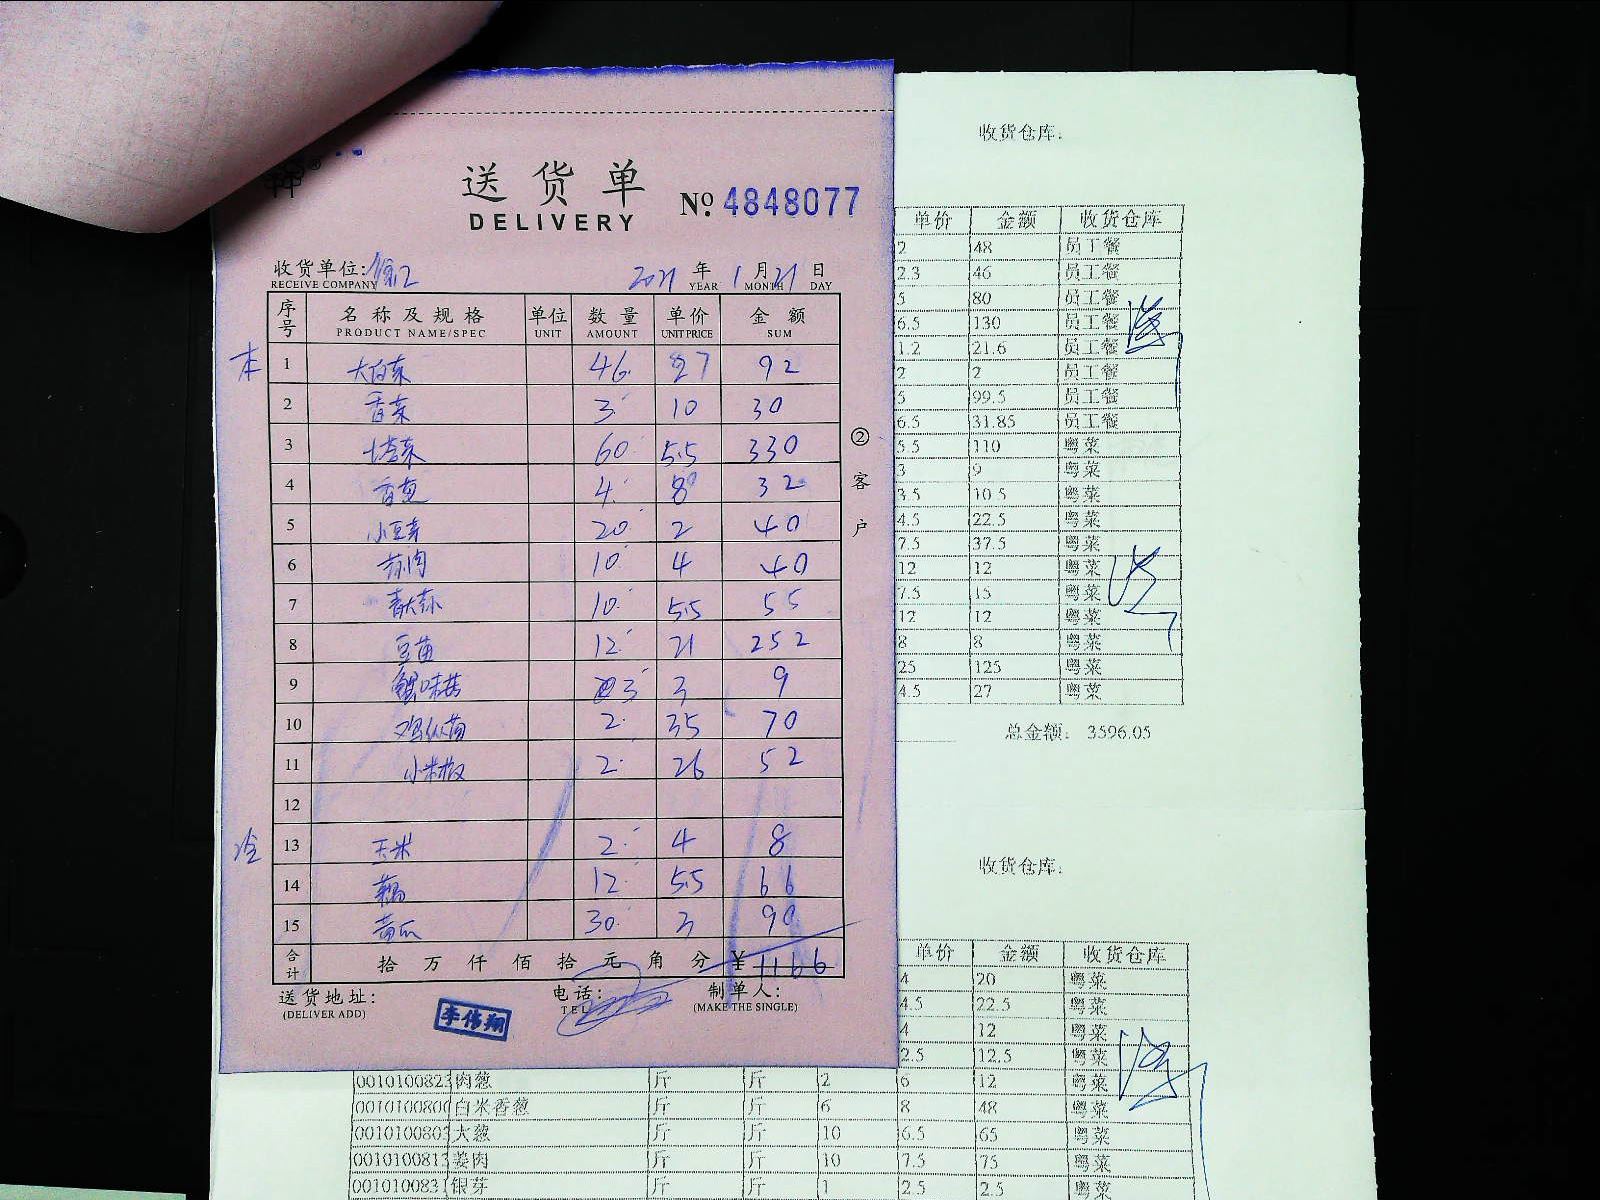 送货单
DELIVERY
№ 4848077
收货单位:
RECEIVE COMPANY
2021 年 1 月 21 日
YEAR MONTH DAY
序号 名称及规格 单位 数量 单价 金额
PRODUCT NAME/SPEC UNIT AMOUNT UNIT PRICE SUM
本
1 大白菜 46 2 92
2 香菜 3 10 30
3 塔菜 60 5.5 330
4 香芫 4 8 32
5 小豆芽 20 2 40
6 10 4 40
7 10 5.5 55
8 豆苗 12 21 252
9 蟹味菇 3 3 9
10 鸡纵菌 2 35 70
11 小米椒 2 26 52
12
冷
13 玉米 2 4 8
14 藕 12 5.5 66
15 黄瓜 30 3 90
合计 拾万仟佰拾元角分 ¥ 1166
送货地址:
(DELIVER ADD)
电话:
TEL
制单人:
(MAKE THE SINGLE)
李伟翔
②客户
收货仓库:
单价 金额 收货仓库
2 48 员工餐
2.3 46 员工餐
5 80 员工餐
6.5 130 员工餐
1.2 21.6 员工餐
2 2 员工餐
5 99.5 员工餐
6.5 31.85 员工餐
5.5 110 粤菜
3 9 粤菜
3.5 10.5 粤菜
4.5 22.5 粤菜
7.5 37.5 粤菜
12 12 粤菜
7.5 15 粤菜
12 12 粤菜
8 8 粤菜
25 125 粤菜
4.5 27 粤菜
总金额: 3596.05
收货仓库:
单价 金额 收货仓库
4 20 粤菜
4.5 22.5 粤菜
4 12 粤菜
2.5 12.5 粤菜
0010100823 肉葱 斤 斤 2 6 12 粤菜
0010100800 白米香葱 斤 斤 6 8 48 粤菜
0010100803 大葱 斤 斤 10 6.5 65 粤菜
0010100813 姜肉 斤 斤 10 7.5 75 粤菜
0010100831 银芽 斤 斤 1 2.5 2.5 粤菜